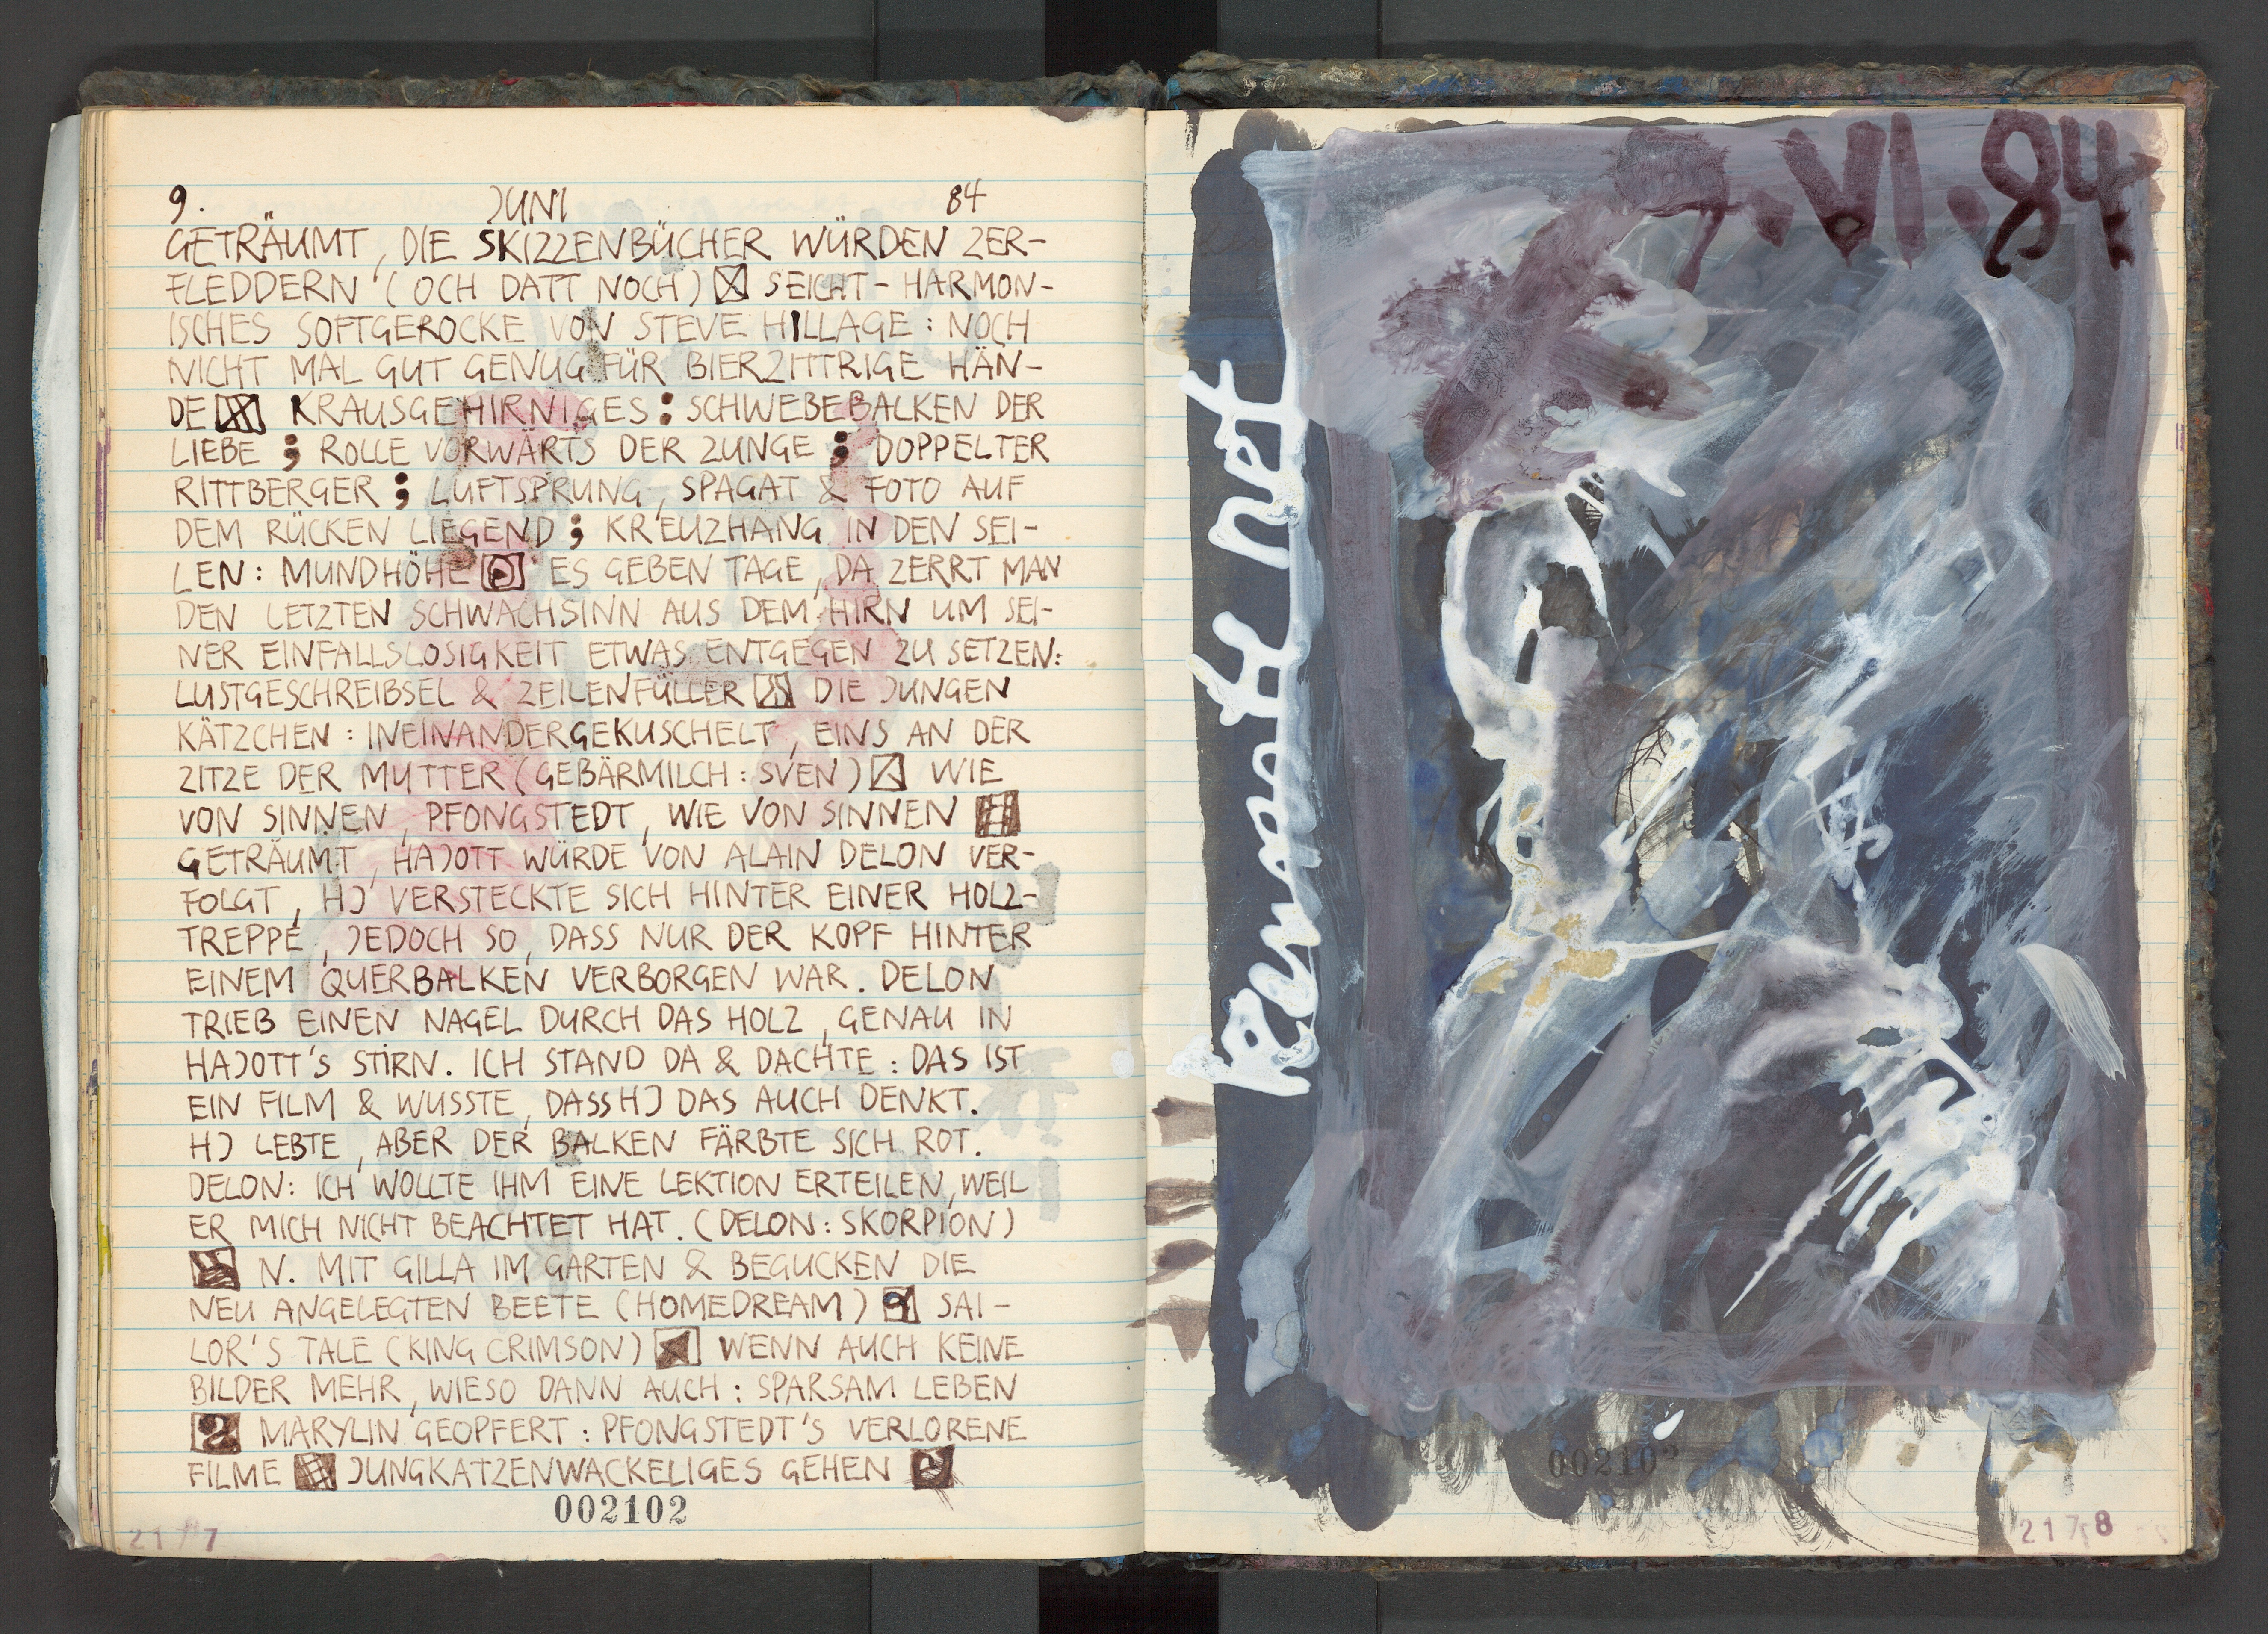 9. JUNI 84
GETRÄUMT, DIE SKIZZENBÜCHER WÜRDEN ZER-
FLEDDERN (OCH DATT NOCH) SEICHT-HARMON-
ISCHES SOFTGEROCKE VON STEVE HILLAGE: NOCH
NICHT MAL GUT GENUG FÜR BIERZITTRIGE HÄN-
DE KRAUSGEHIRNIGES: SCHWEBEBALKEN DER
LIEBE; ROLLE VORWÄRTS DER ZUNGE; DOPPELTER
RITTBERGER; LUFTSPRUNG, SPAGAT & FOTO AUF
DEM RÜCKEN LIEGEND; KREUZHANG IN DEN SEI-
LEN: MUNDHÖHE ES GEBEN TAGE, DA ZERRT MAN
DEN LETZTEN SCHWACHSINN AUS DEM HIRN UM SEI-
NER EINFALLSLOSIGKEIT ETWAS ENTGEGEN ZU SETZEN:
LUSTGESCHREIBSEL & ZEILENFÜLLER DIE JUNGEN
KÄTZCHEN: INEINANDERGEKUSCHELT, EINS AN DER
ZITZE DER MUTTER (GEBÄRMILCH: SVEN) WIE
VON SINNEN, PFONGSTEDT, WIE VON SINNEN
GETRÄUMT, HAJOTT WÜRDE VON ALAIN DELON VER-
FOLGT, HJ VERSTECKTE SICH HINTER EINER HOLZ-
TREPPE, JEDOCH SO, DASS NUR DER KOPF HINTER
EINEM QUERBALKEN VERBORGEN WAR. DELON
TRIEB EINEN NAGEL DURCH DAS HOLZ, GENAU IN
HAJOTT'S STIRN. ICH STAND DA & DACHTE: DAS IST
EIN FILM & WUSSTE, DASS HJ DAS AUCH DENKT.
HJ LEBTE, ABER DER BALKEN FÄRBTE SICH ROT.
DELON: ICH WOLLTE IHM EINE LEKTION ERTEILEN, WEIL
ER MICH NICHT BEACHTET HAT. (DELON: SKORPION)
N. MIT GILLA IM GARTEN & BEGUCKEN DIE
NEU ANGELEGTEN BEETE (HOMEDREAM) SAI-
LOR'S TALE (KING CRIMSON) WENN AUCH KEINE
BILDER MEHR, WIESO DANN AUCH: SPARSAM LEBEN
MARYLIN GEOPFERT: PFONGSTEDT'S VERLORENE
FILME JUNGKATZENWACKELIGES GEHEN
002102
2177
9.VI.84
002102
2178